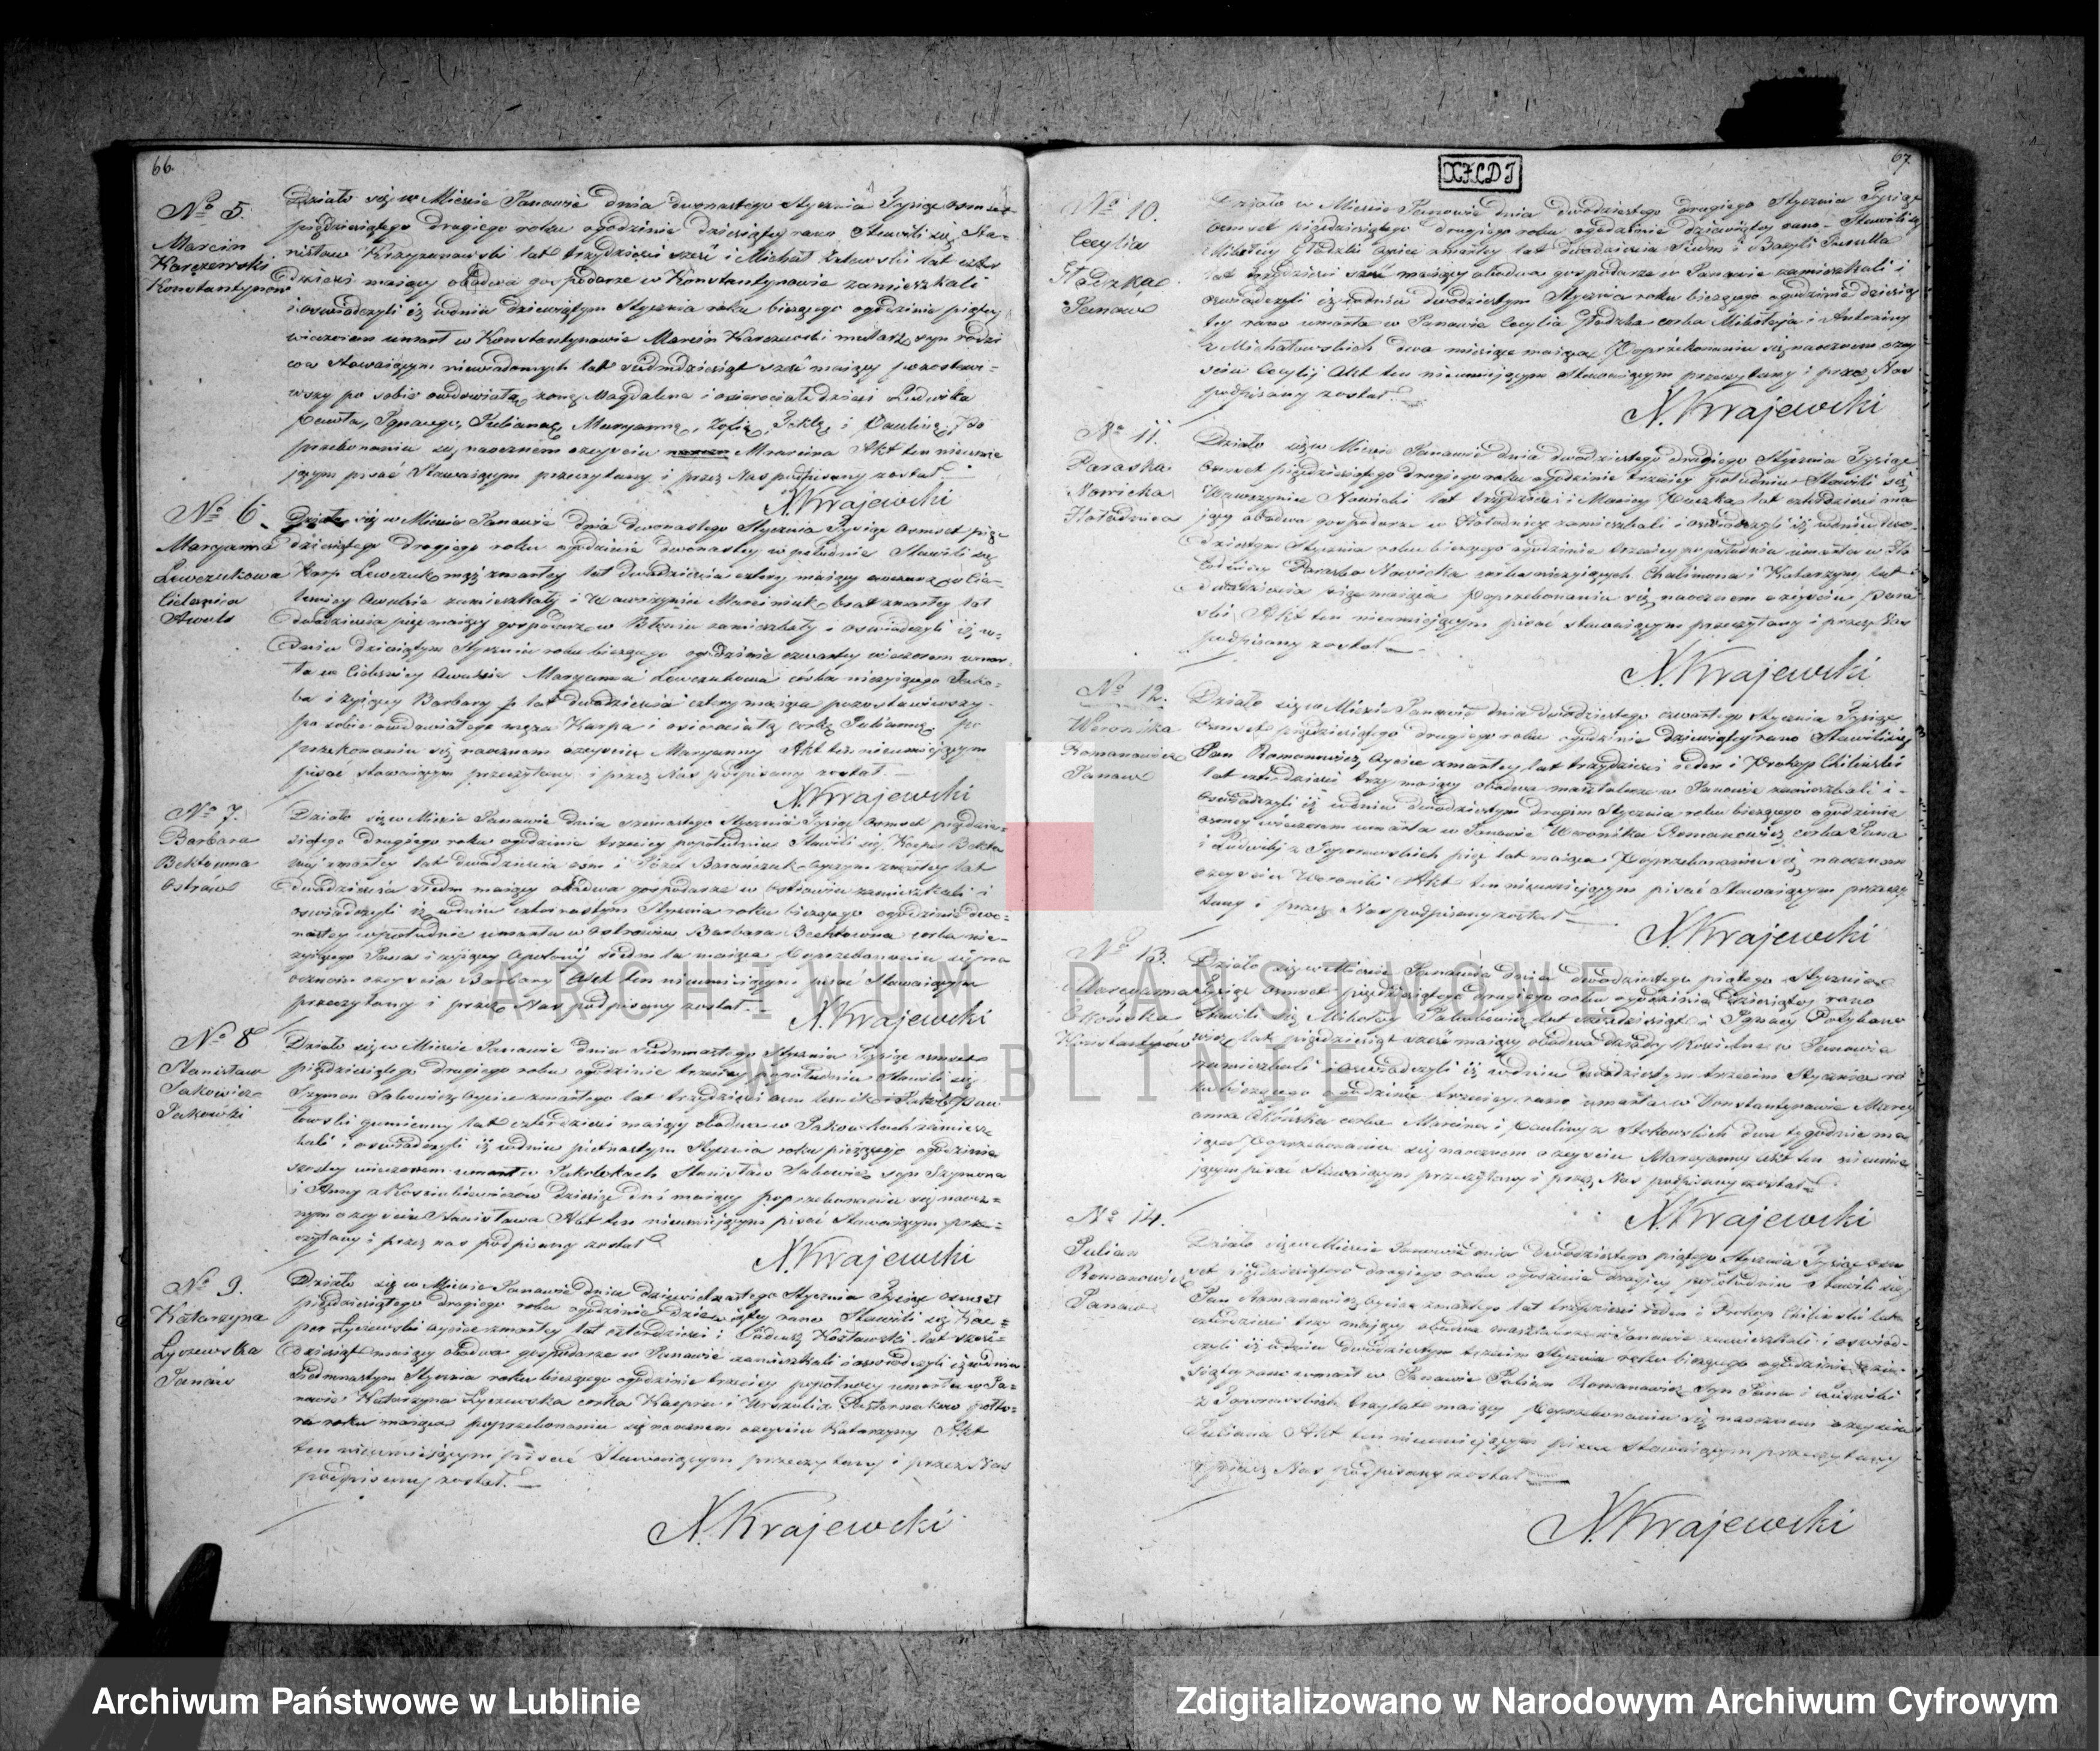 66.
No 5.
Marcin
Karczewski
Konstantynow
Działo się w Mieście Janowie dnia dwunastego Stycznia Tysiąc osmset
pięćdziesiątego drugiego roku o godzinie dziesiątey rano Stawili się Sta-
nisław Krzyżanowski lat trzydzieści sześć i Michał
dzieści maiący obadwa gospodarze w Konstantynowie zamieszkali
i oswiadczyli iż w dniu dziewiątym Stycznia roku bieżącego o godzinie piątey
wieczorem umarł w Konstantynowie Marcin Karczewski syn rodzi
ców Stawaiącym niewiadomych lat siedmdziesiąt sześć maiący pozostawi-
wszy po sobie owdowiałą żonę Magdalenę i osierociałe dzieci Ludwika
Pawła, Ignacego, Juliannę, Maryannę, Zofię, Teklę i Paulinę. Po
przekonaniu się naocznem o zeyściu Marcina Akt ten nieumie
jącym pisać Stawaiącym przeczytany i przez Nas podpisany został.
N. Krajewski
No 6.
Maryanna
Lewczukowa
Cieleśnica
Działo się w Mieście Janowie dnia dwunastego Stycznia Tysiąc Osmset pięć
dziesiątego drugiego roku o godzinie dwunastey w południe Stawili się
Karp Lewczuk mąż zmarłey lat dwadzieścia cztery maiący
zamieszkały i Wawrzyniec Marciniuk brat zmarłey lat
dwadzieścia pięć maiący gospodarz w zamieszkały i oswiadczyli iż w
dniu dziewiątym Stycznia roku bieżącego o godzinie czwartey wieczorem umar-
ła w Cieleśnicy Maryanna Lewczukowa córka nieżyiącego Jakó-
ba i żyiącey Barbary lat dwadzieścia cztery maiąca pozostawiwszy
po sobie owdowiałego męża Karpa i osierociałą córkę Juliannę, po
przekonaniu się naocznem o zeyściu Maryanny Akt ten nieumiejącym
pisać stawaiącym przeczytany i przez Nas podpisany został.
N. Krajewski
No 7.
Barbara
Bektówna
Ostrów
Działo się w Mieście Janowie dnia szesnastego Stycznia Tysiąc Osmset pięćdzie-
siątego drugiego roku o godzinie trzeciey popołudniu Stawili się Kacper Bekta
zmarłey lat dwadzieścia osm i Józef zmarłey lat
dwadzieścia siedm maiący obadwa gospodarze w Ostrowiu zamieszkali i
oswiadczyli iż w dniu czternastym Stycznia roku bieżącego o godzinie dwu-
nastey w południe umarła w Ostrowiu Barbara Bektówna córka nie-
żyiącego Jana i żyiącey siedm lat maiąca Po przekonaniu się na
ocznem o zeyściu Barbary Akt ten nieumiejącym pisać Stawaiącym
przeczytany i przez Nas podpisany został.
N. Krajewski
No 8
Stanisław
Sakowicz
Jakówki
Działo się w Mieście Janowie dnia siedmnastego Stycznia Tysiąc osmset
pięćdziesiątego drugiego roku o godzinie trzeciey popołudniu Stawili się
Szymon Sakowicz oyciec zmarłego lat trzydzieści osm
gumienny lat czterdzieści maiący obadwa w Jakówkach zamiesz
kali i oswiadczyli iż w dniu piętnastym Stycznia roku bieżącego o godzinie
szóstey wieczorem umarł w Jakówkach Stanisław Sakowicz syn Szymona
i Anny z dziesięć dni maiący po przekonaniu się naocz-
nym o zeyściu Stanisława Akt ten nieumiejącym pisać Stawaiącym prze-
czytany i przez nas podpisany został
N. Krajewski
No 9.
Katarzyna
Łyczewska
Janów
Działo się w Mieście Janowie dnia dziewiętnastego Stycznia Tysiąc osmset
pięćdziesiątego drugiego roku o godzinie dziewiątey rano Stawili się Kac-
per Łyczewski oyciec zmarłey lat czterdzieści i Tadeusz Kozłowski lat sześć-
dziesiąt maiący obadwa gospodarze w Janowie zamieszkali i oswiadczyli iż w dniu
siedmnastym Stycznia roku bieżącego o godzinie trzeciey popołnocy umarła w Ja-
nowie Katarzyna Łyczewska córka Kacpra i Urszuli z Pasternaków półto-
ra roku maiąca po przekonaniu się naocznem o zeyściu Katarzyny Akt
ten nieumiejącym pisać Stawaiącym przeczytany i przez Nas
podpisany został.
N. Krajewski
67
No 10.
Cecylia
Głodzka
Janów
Działo w Mieście Janowie dnia dwudziestego drugiego Stycznia Tysiąc
Osmset pięćdziesiątego drugiego roku o godzinie dziewiątey rano Stawili się
Mikołay Głodzki oyciec zmarłey lat dwadzieścia siedm i Bazyli
lat trzydzieści sześć maiący obadwa gospodarze w Janowie zamieszkali i
oswiadczyli iż w dniu dwudziestym Stycznia roku bieżącego o godzinie dziesią
tey rano umarła w Janowie Cecylia Głodzka córka Mikołaja i Antoniny
z Michałowskich dwa miesiące maiąca Po przekonaniu się naocznem o zey
ściu Cecylij Akt ten nieumiejącym Stawaiącym przeczytany i przez Nas
podpisany został.
N. Krajewski
No 11.
Paraska
Nowicka
Hołodnica
Działo się w Mieście Janowie dnia dwudziestego drugiego Stycznia Tysiąc
Osmset pięćdziesiątego drugiego roku o godzinie trzeciey popołudniu Stawili się
Wawrzyniec Nowicki lat trzydzieści i Maciey lat czterdzieści ma
jący obadwa gospodarze w Hołodnicy zamieszkali i oswiadczyli iż w dniu dwu-
dziestym Stycznia roku bieżącego o godzinie trzeciey popołudniu umarła w Ho
łodnicy Paraska Nowicka córka nieżyiących Chalimona i Katarzyny lat
dwadzieścia pięć maiąca Po przekonaniu się naocznem o zeyściu Para
ski Akt ten nieumiejącym pisać stawaiącym przeczytany i przez Nas
podpisany został
N. Krajewski
No 12.
Weronika
Romanowicz
Janów
Działo się w Mieście Janowie dnia dwudziestego czwartego Stycznia Tysiąc
Osmset pięćdziesiątego drugiego roku o godzinie dziewiątey rano Stawili się
Jan Romanowicz oyciec zmarłey lat trzydzieści jeden i Prokop Chiliński
lat czterdzieści trzy maiący obadwa masztalerze w Janowie zamieszkali i
oswiadczyli iż w dniu dwudziestym drugim Stycznia roku bieżącego o godzinie
osmey wieczorem umarła w Janowie Weronika Romanowicz córka Jana
i Ludwiki z pięć lat maiąca Po przekonaniu się naocznem
o zeyściu Weroniki Akt ten nieumiejącym pisać Stawaiącym przeczy
tany i przez Nas podpisany został
N. Krajewski
No 13.
Maryanna
Konstantynów
Działo się w Mieście Janowie dnia dwudziestego piątego Stycznia
Tysiąc Osmset pięćdziesiątego drugiego roku o godzinie dziesiątey rano
Stawili się Mikołay lat sześćdziesiąt i Ignacy
lat pięćdziesiąt sześć maiący obadwa w Janowie
zamieszkali i oswiadczyli iż w dniu dwudziestym trzecim Stycznia ro
ku bieżącego o godzinie trzeciey rano umarła w Konstantynowie Mary
anna córka Marcina i Pauliny z dwa tygodnie ma
iąca Po przekonaniu się naocznem o zeyściu Maryanny Akt ten nieumie
jącym pisać Stawaiącym przeczytany i przez Nas podpisany został
N. Krajewski
No 14.
Julian
Romanowicz
Janów
Działo się w Mieście Janowie dnia dwudziestego piątego Stycznia Tysiąc Osm
set pięćdziesiątego drugiego roku o godzinie drugiey popołudniu Stawili się
Jan Romanowicz oyciec zmarłego lat trzydzieści jeden i Prokop Chiliński lat
czterdzieści trzy maiący obadwa masztalerze w Janowie zamieszkali i oswiad-
czyli iż w dniu dwudziestym trzecim Stycznia roku bieżącego o godzinie
rano umarł w Janowie Julian Romanowicz syn Jana i Ludwiki
z trzy lata maiący Po przekonaniu się naocznem o zeyściu
Juliana Akt ten nieumiejącym pisać stawaiącym przeczytany
i przez Nas podpisany został
N. Krajewski
ARCHIWUM PAŃSTWOWE
W LUBLINIE
Archiwum Państwowe w Lublinie
Zdigitalizowano w Narodowym Archiwum Cyfrowym